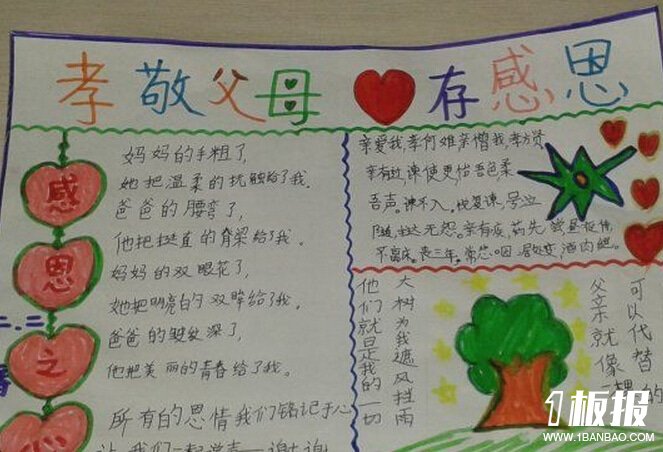 孝敬父母 存感恩
感恩之心
妈妈的手粗了,
她把温柔的抚触给了我。
爸爸的腰弯了,
他把挺直的脊梁给了我。
妈妈的双眼花了,
她把明亮的双眸给了我。
爸爸的皱纹深了,
他把美丽的青春给了我。
所有的恩情我们铭记于心
让我们一起说声——谢谢
亲爱我,孝何难,亲憎我,孝方贤
亲有过,谏使更,怡吾色,柔
吾声。谏不入。悦复谏,号泣
随,挞无怨。亲有疾,药先尝,昼夜侍,
不离床。丧三年。常悲咽,居处变,酒肉绝。
父亲就像
可以代替的
大树为我遮风挡雨
他们就是我的一切
1板报
WWW.1BANBAO.COM